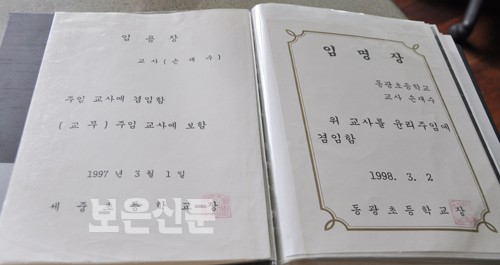 임용장
교사(손대수)
주임 교사에 겸임함
(교무) 주임 교사에 보함
1997 년 3 월 1 일
세중초등학교장
임 명 장
동광초등학교
교사 손대수
위 교사를 윤리주임에
겸임함
1998. 3. 2
동광초등학교장
보은신문